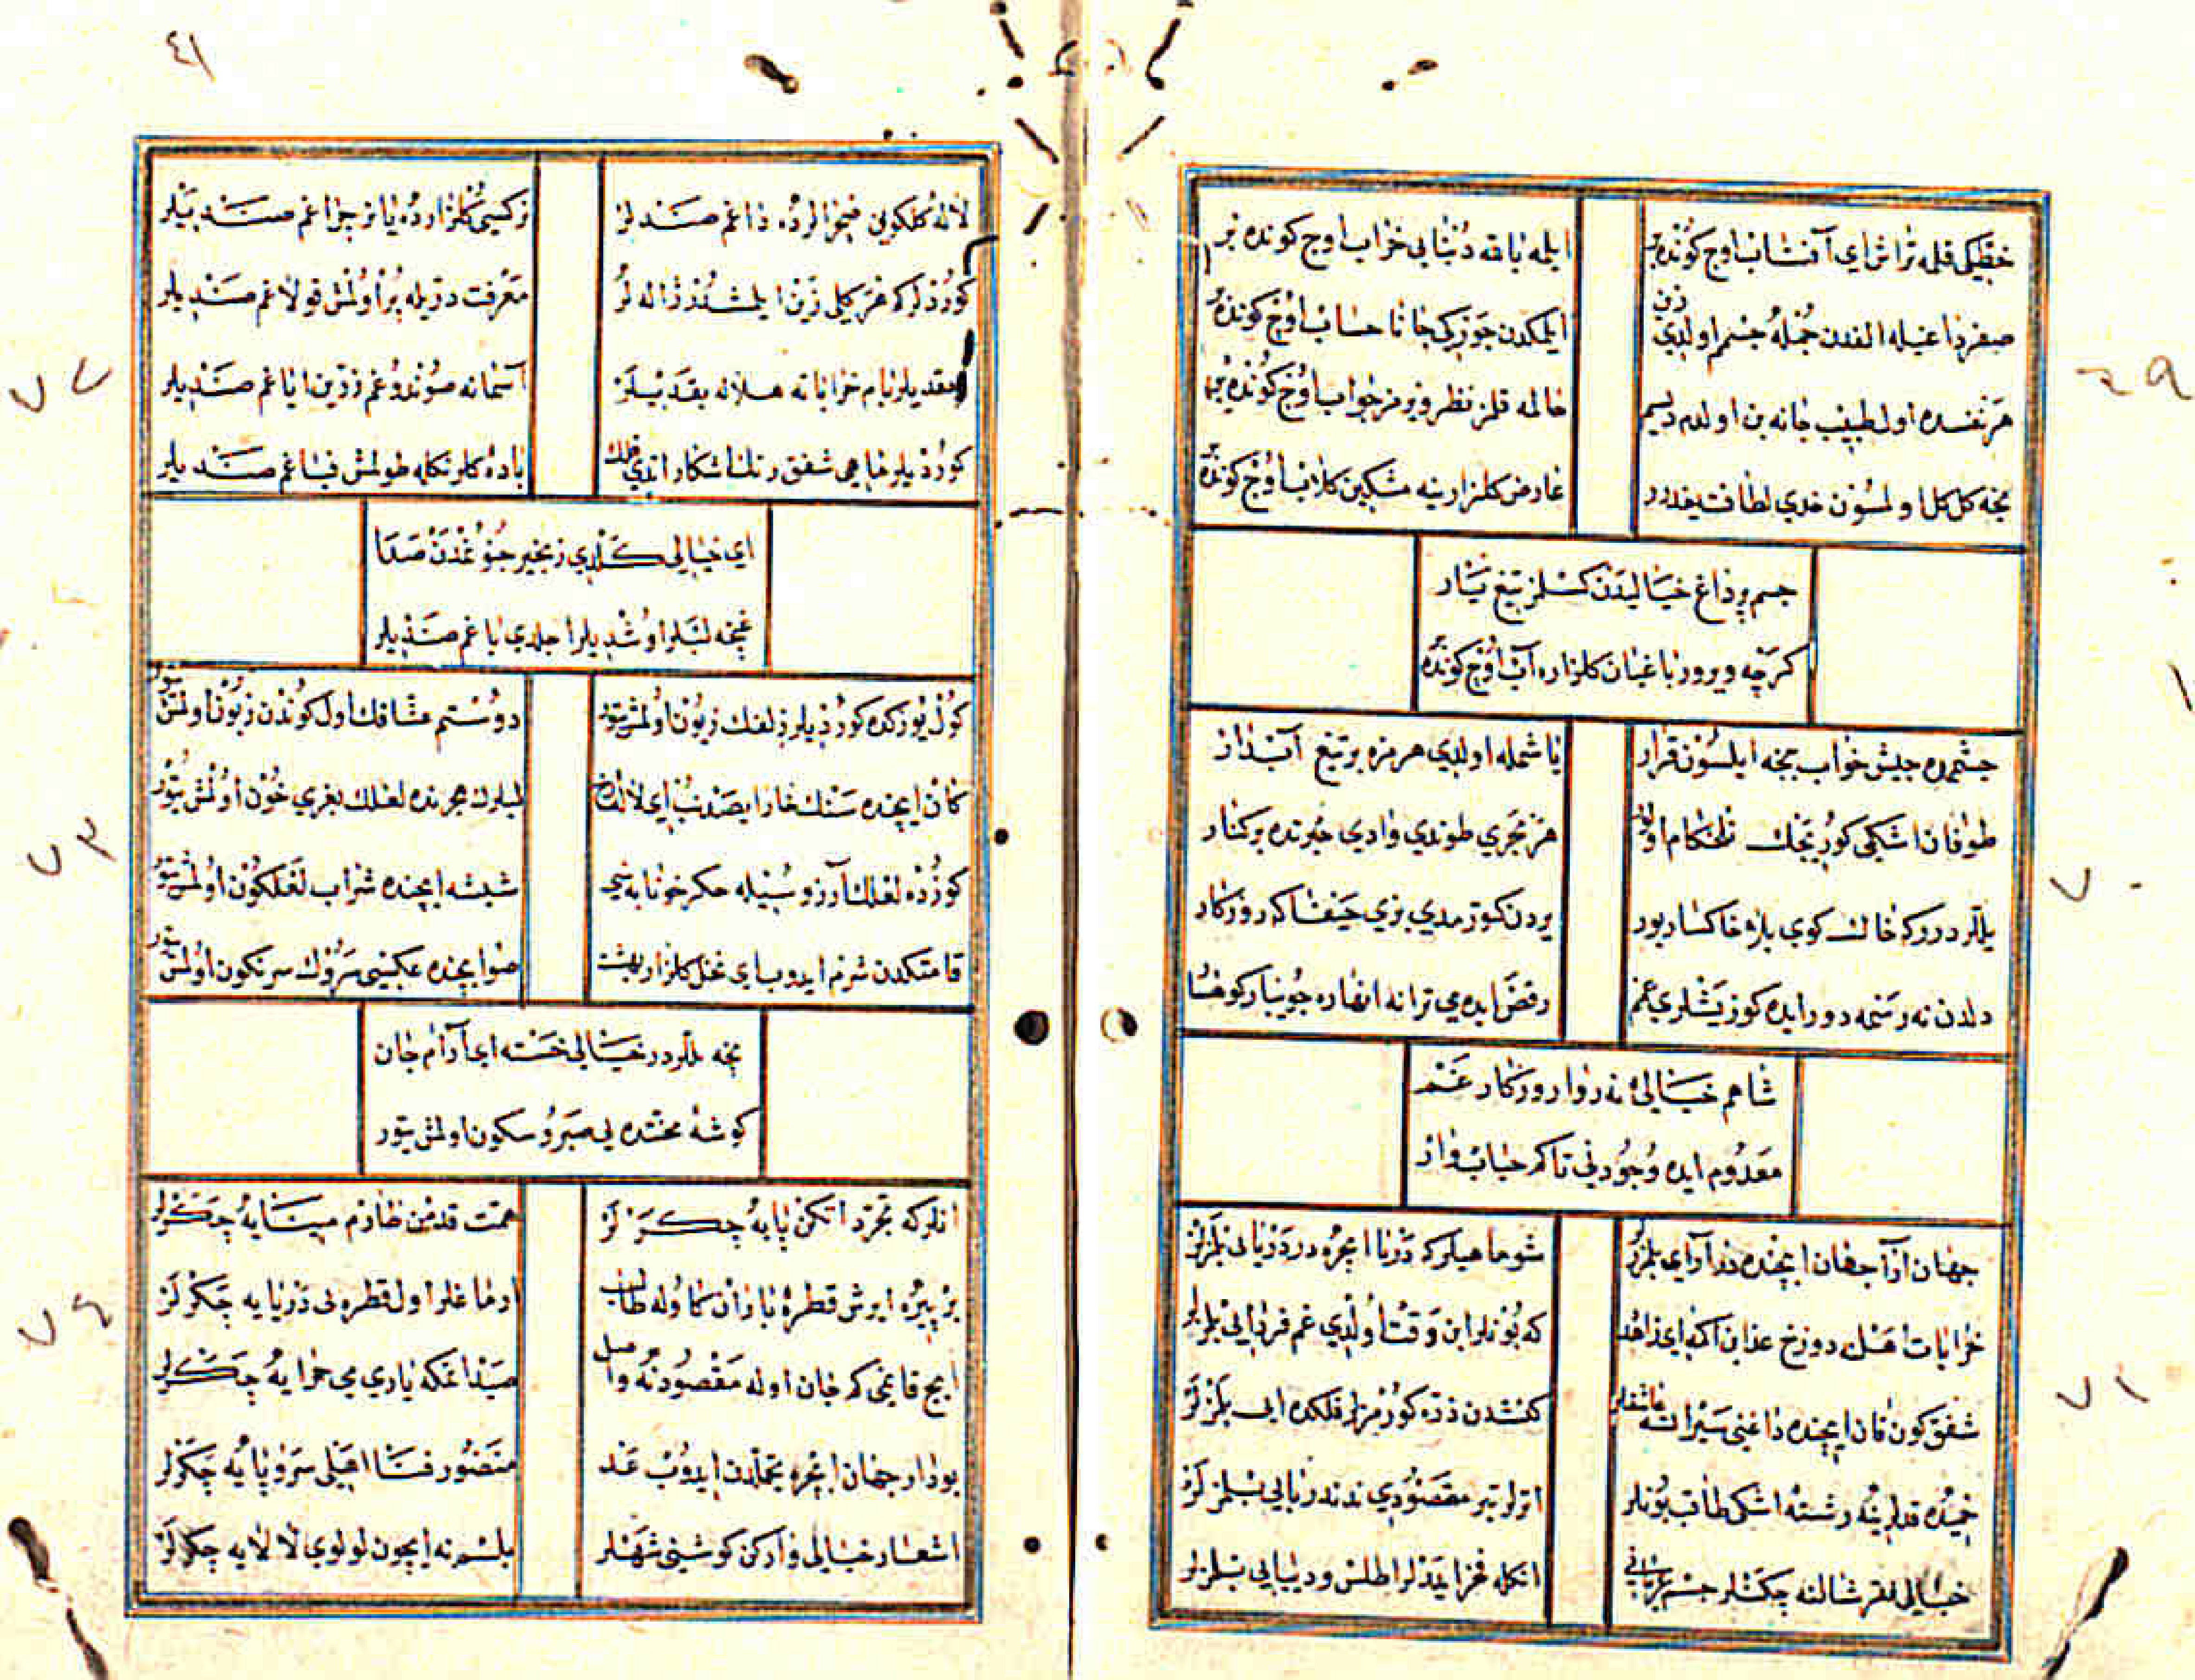 ٤١
خطیکی قلمه تراش ای آفتاب اوچ کونده بر
ایلمه یا مه دنیایی خراب اوچ کونده بر
صفر داغیله الفدن جمله جسم اولدی زین
ایلمکدن جوزکی جانا حساب اوچ کونده بر
هر نفسده اول طبیب جانه بن اولدم دیسم
حالمه قلمز نظر ویرمز جواب اوچ کونده بر
نجه کل کل اولمسون خدی لطافتیندر
عارض کلزارینه مشکین کلاب اوچ کونده
جسم پر داغ خیالیدن کسلمز تیغ یار
کرچه ویرور باغبان کلزاره آب اوچ کونده
چشممده جیش خواب نجه ایلسون قرار
یاشمله اولدی هر مژه بر تیغ آبدار
طوفان اشکمی کوریجک تلخکام اولور
هر مجری طوندی وادی حیرتده بر کنار
یللردرر که خاک کوی یاره خاکسار یوز
یردن کوتورمدی بزی حیفا که روزکار
دلدن نه رسمه دور ایده کوز یشلری غمن
رقص ایده می ترانه انهاره جویبار
شاهم خیالی نه روا روزکار غم
معدوم ایده وجودنی تا کم حباب وار
جهان آرا جهان ایچنده در آرایی بلمزلر
شو ماهیلر که دریا ایچره در دریایی بلمزلر
خرابات اهلنه دوزخ عذابن آکمه ای زاهد
که بونلر ابن وقت اولدی غم فردایی بلمزلر
شفق کون قان ایچنده داغنی سیر ایتسه عاشقلر
کنشدن ذره کورمزلر فلکده آیی بلمزلر
خمیده قدلرینه رشتهٔ اشکی طاقب بونلر
اترلر تیر مقصودی نه دندر یایی بلمزلر
خیالی فقر شالنه چکنلر جسم عریانی
انکله فخر ایدرلر اطلس و دیبایی بلمزلر
لاله کلکونی صحرالرده داغم صندلر
نرکسی کلزارده یانر چراغم صندیلر
کوردیلر که غریکیلی زین ایلمشدر ژاله لر
معرفت درّیله پر اولمش قولاغم صندیلر
عقدیلر بام خراباته هلاله بقدیلر
آسمانه صوندوغم زرین ایاغم صندیلر
کوردیلر خامی شفق رنک آشکار اتدی فلک
باده کلرنکله طولمش قباغم صندیلر
ای خیالی کلدی زنجیر جنونمدن صدا
غنچه لبلر اوشدیلر اچلدی باغم صندیلر
کول یوزکده کوردیلر زلفک زبون اولمش یتور
دوستم عشاقک اول کوندن زبون اولمش یتور
کان ایچنده سنک خارا ایصدنب ای لاله رخ
لبلرک هجرنده لعلک بغری خون اولمش یتور
کوزده لعلک آرزوسیله جکر خونابه سی
شیشه ایچنده شراب لعلکون اولمش یتور
قامتکدن شرم ایدوب ای نخل کلزار بهشت
صو ایچنده عکسی سروک سرنکون اولمش یتور
نجه یللردر خیالی خسته ای آرام جان
کوشهٔ محنتده بی صبر و سکون اولمش یتور
انلر که تجرد اتکن پایه چکرلر
همت قدمن طارم مینایه چکرلر
بر پیره ایرش قطرهٔ باران کا وله طالب
ارماغلر اول قطره یی دریایه چکرلر
ایچ قانمی کم جان اوله مقصودنه واصل
صید اتمکه یاری می حمرایه چکرلر
بو دار جهان ایچره تجملدن ایدوب عد
منصور فنا اهلی سر و پایه چکرلر
اشعار خیالی وارکن کوشنی شهلر
بلسم نه ایچون لولوی لالایه چکرلر
٦٩
٧٠
٧١
٧٢
٧٣
٧٤